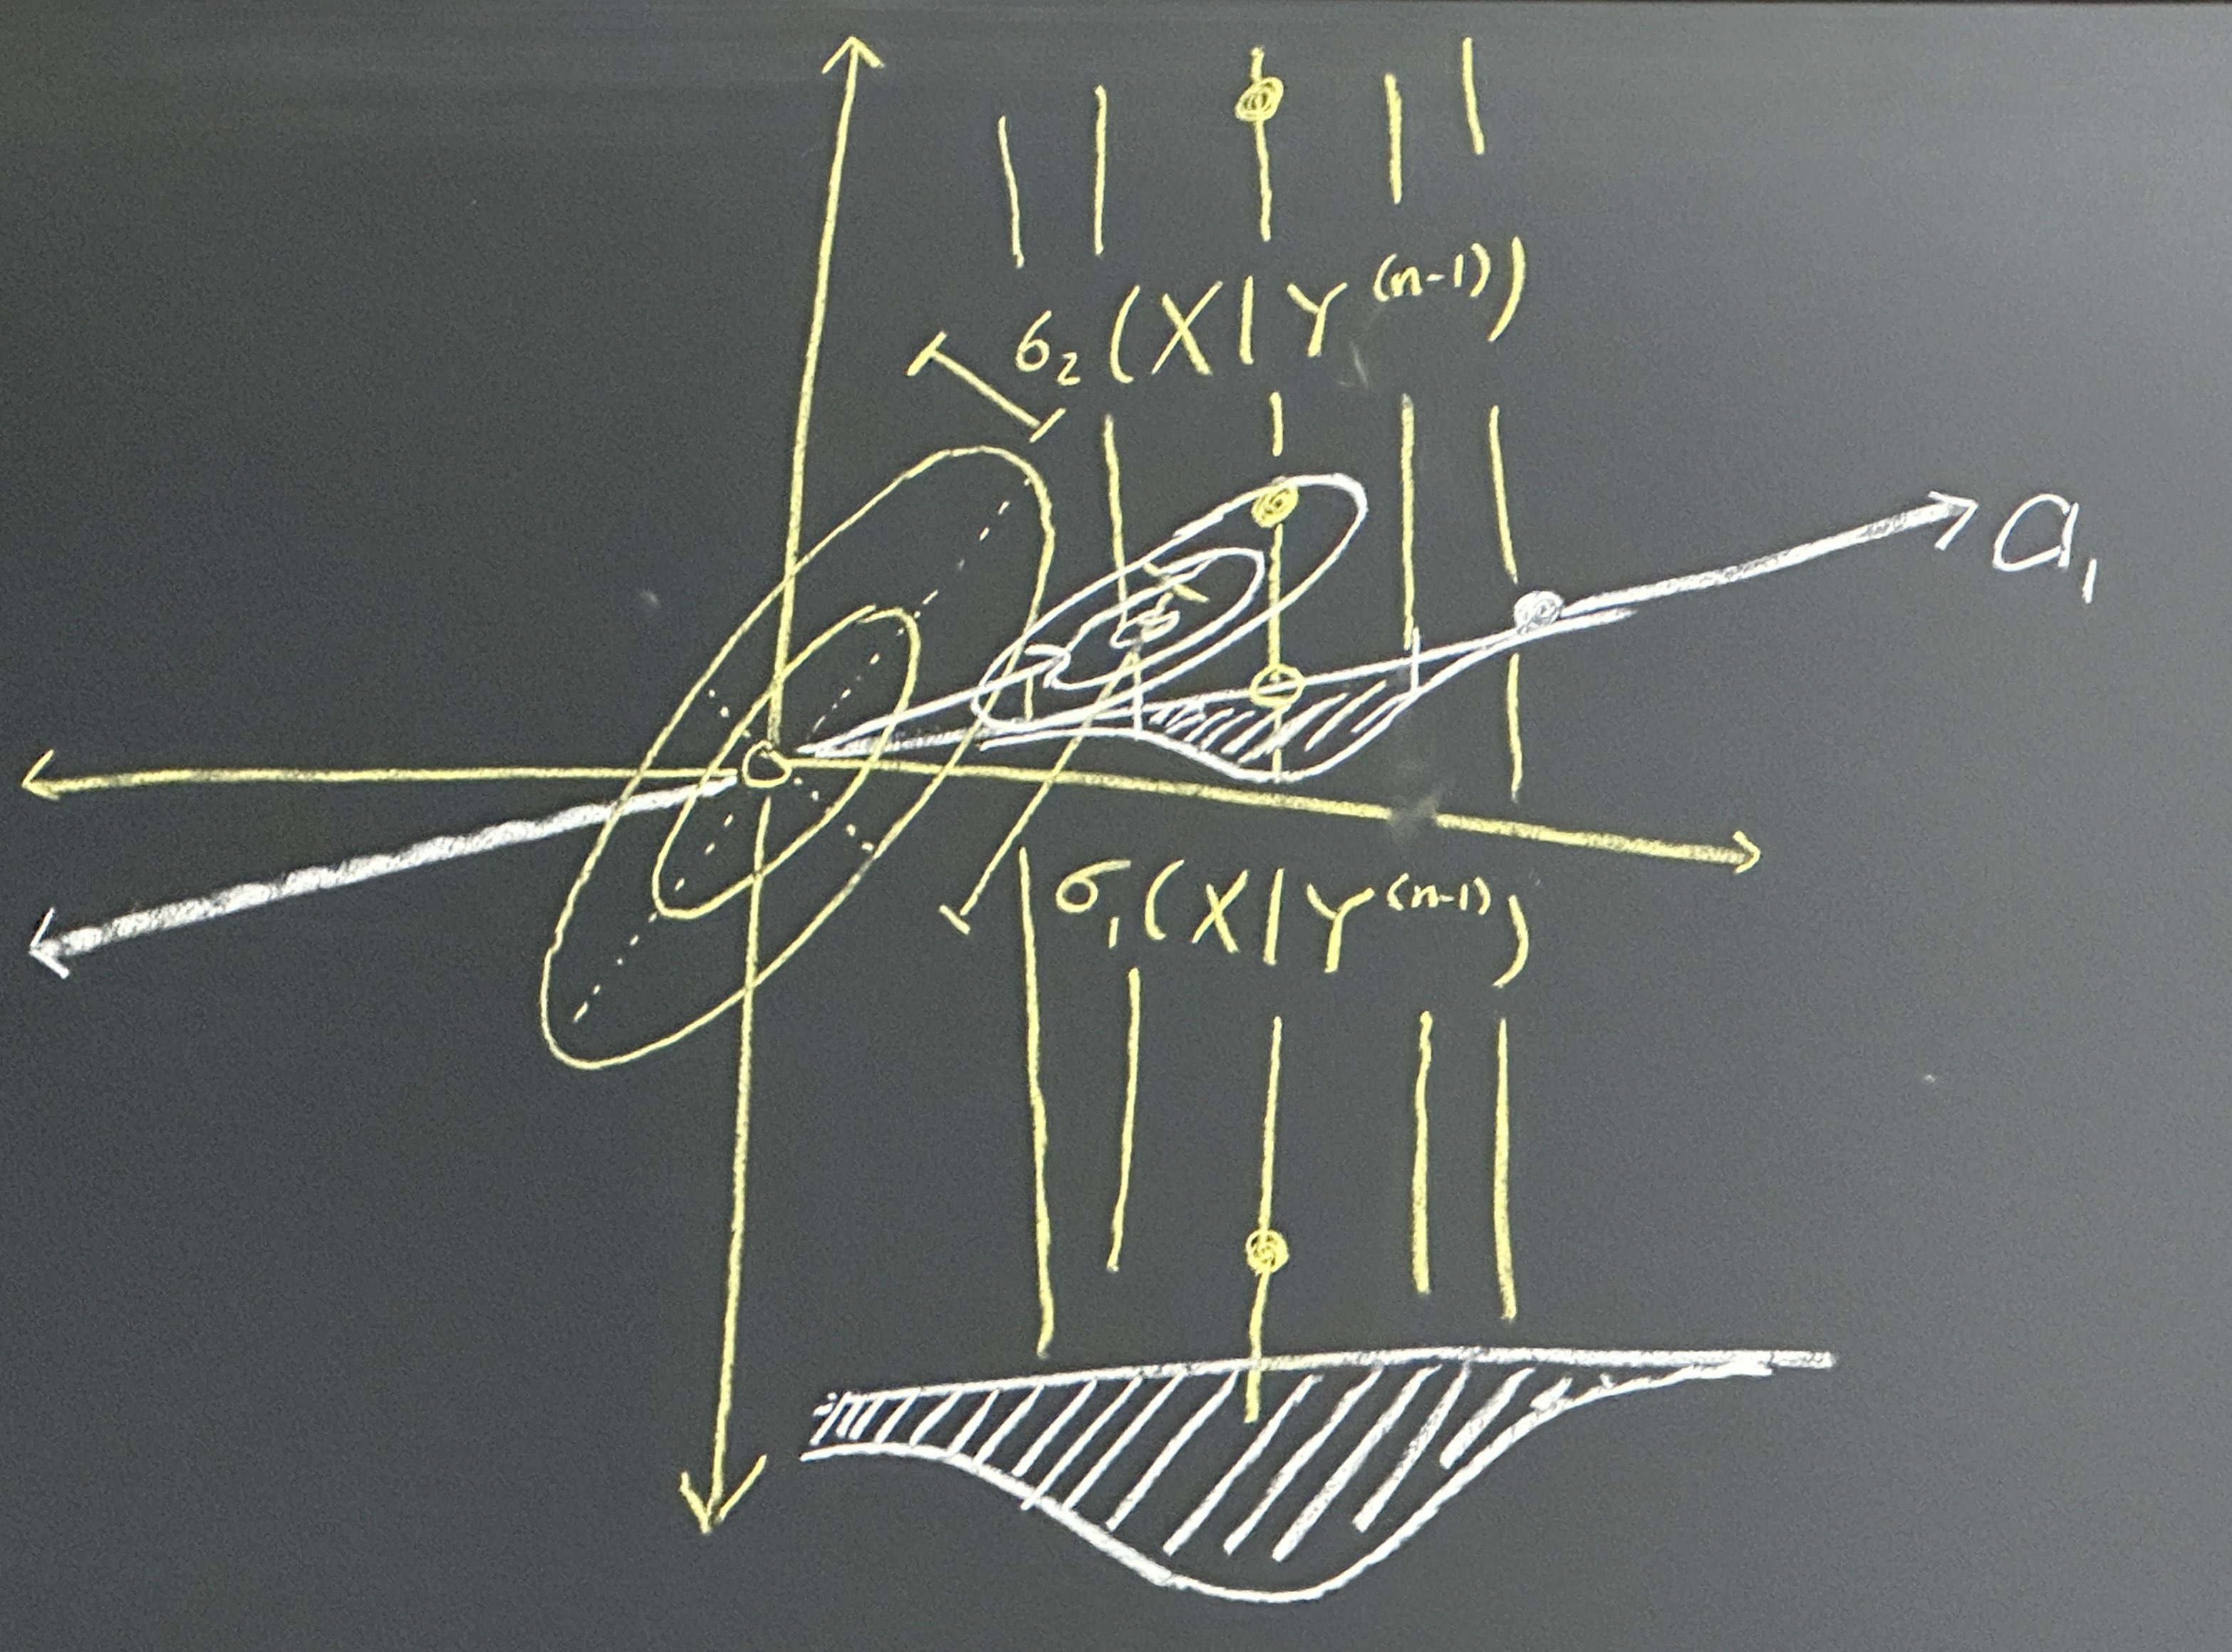 σ₂(X|Y⁽ⁿ⁻¹⁾)
a₁
σ₁(X|Y⁽ⁿ⁻¹⁾)